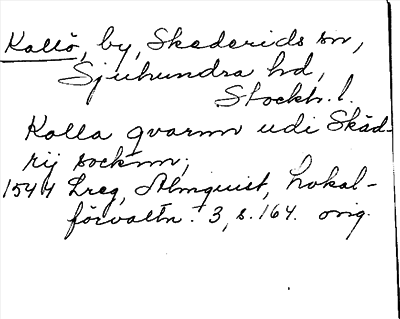 Kallö, by, Skederids sn,
Sjuhundra hd,
Stockh. l.
Kalla qvarnn udi Skäd-
rij socknn;
1544 Lreg, Almquist, Lokal-
förvaltn. 3, s. 164. orig.